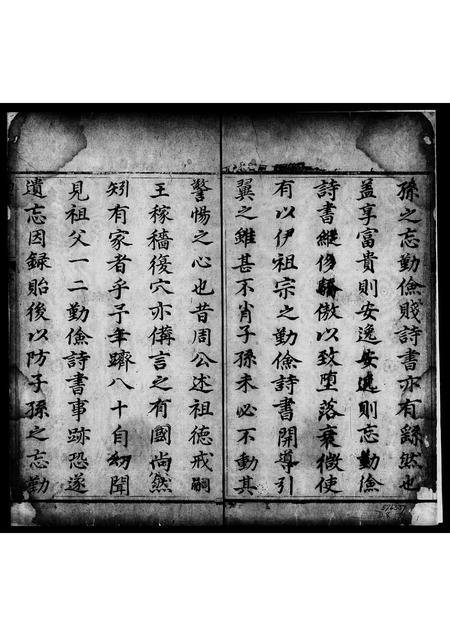 孫之忘勤儉賤詩書亦有繇然也
蓋享富貴則安逸安逸則忘勤儉
詩書縱侈驕傲以致墮落衰微使
有以伊祖宗之勤儉詩書開導引
翼之雖甚不肖子孫未必不動其
警惕之心也昔周公述祖德戒嗣
王稼穡復穴亦備言之有國尚然
矧有家者乎予年躋八十自幼聞
見祖父一二勤儉詩書事跡恐遂
遺忘因録貽後以防子孫之忘勤